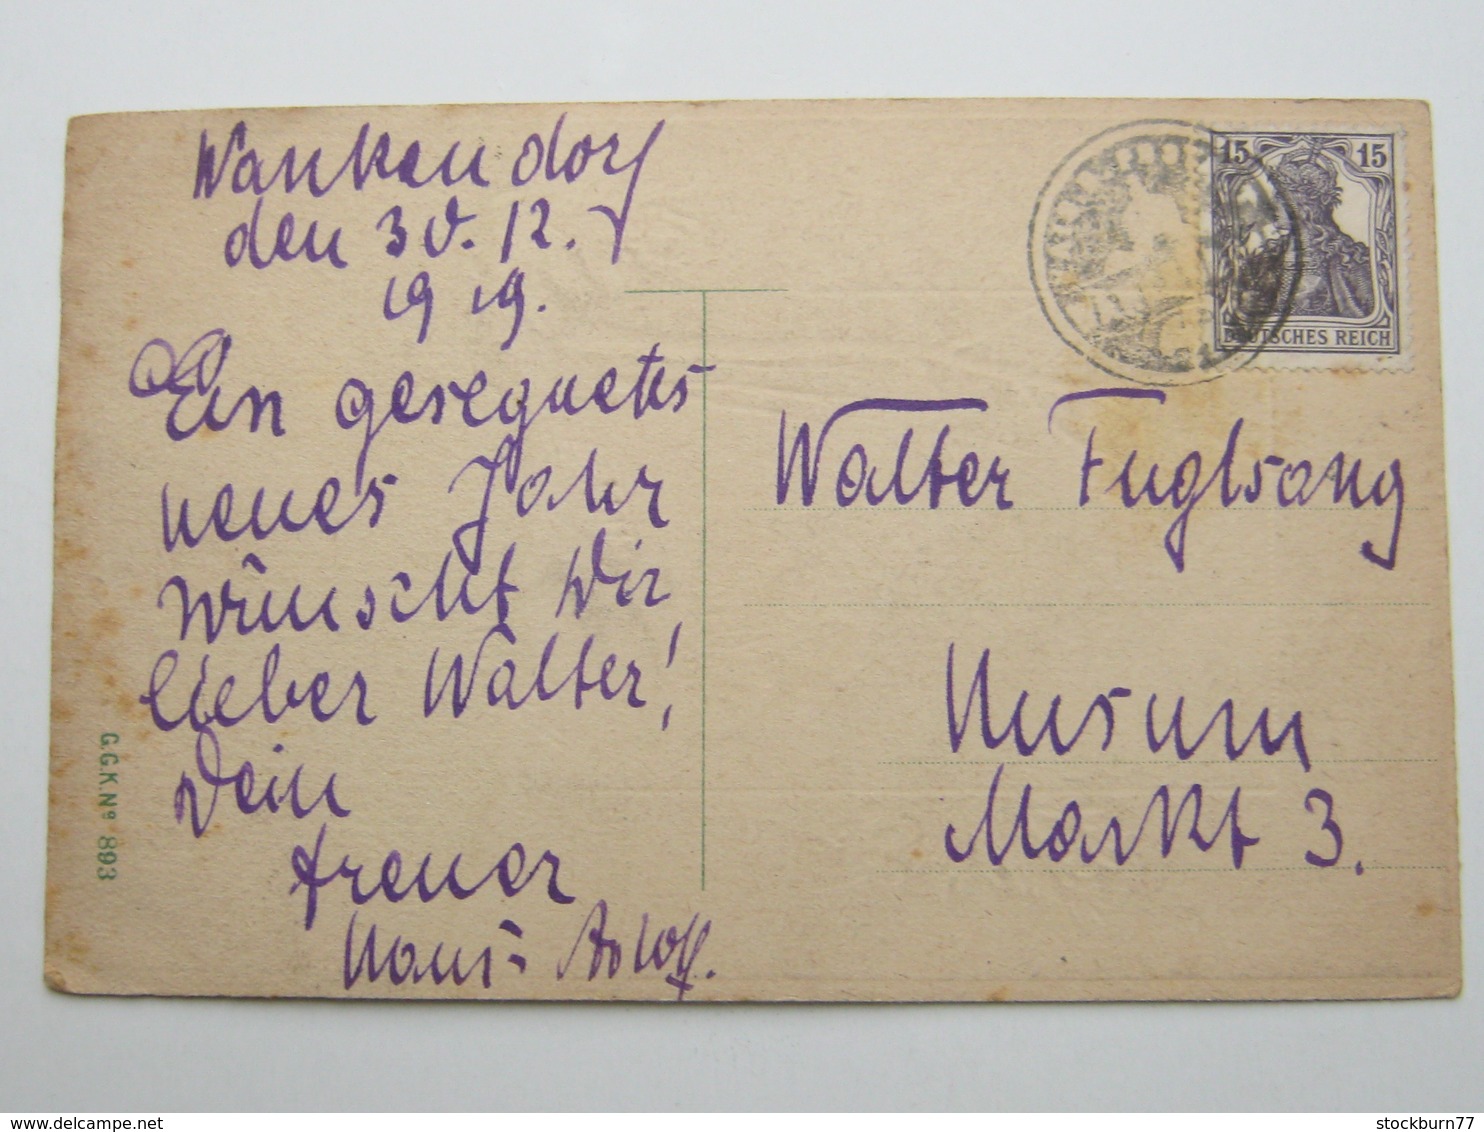 Wankendorf
den 30.12.
1919.
Ein gesegnetes
neues Jahr
wünscht Dir
lieber Walter!
Dein
treuer
Hans-Adolf.
G.G.K.Nº 893
15 15
DEUTSCHES REICH
Walter Fuglsang
Husum
Markt 3.
stockburn77